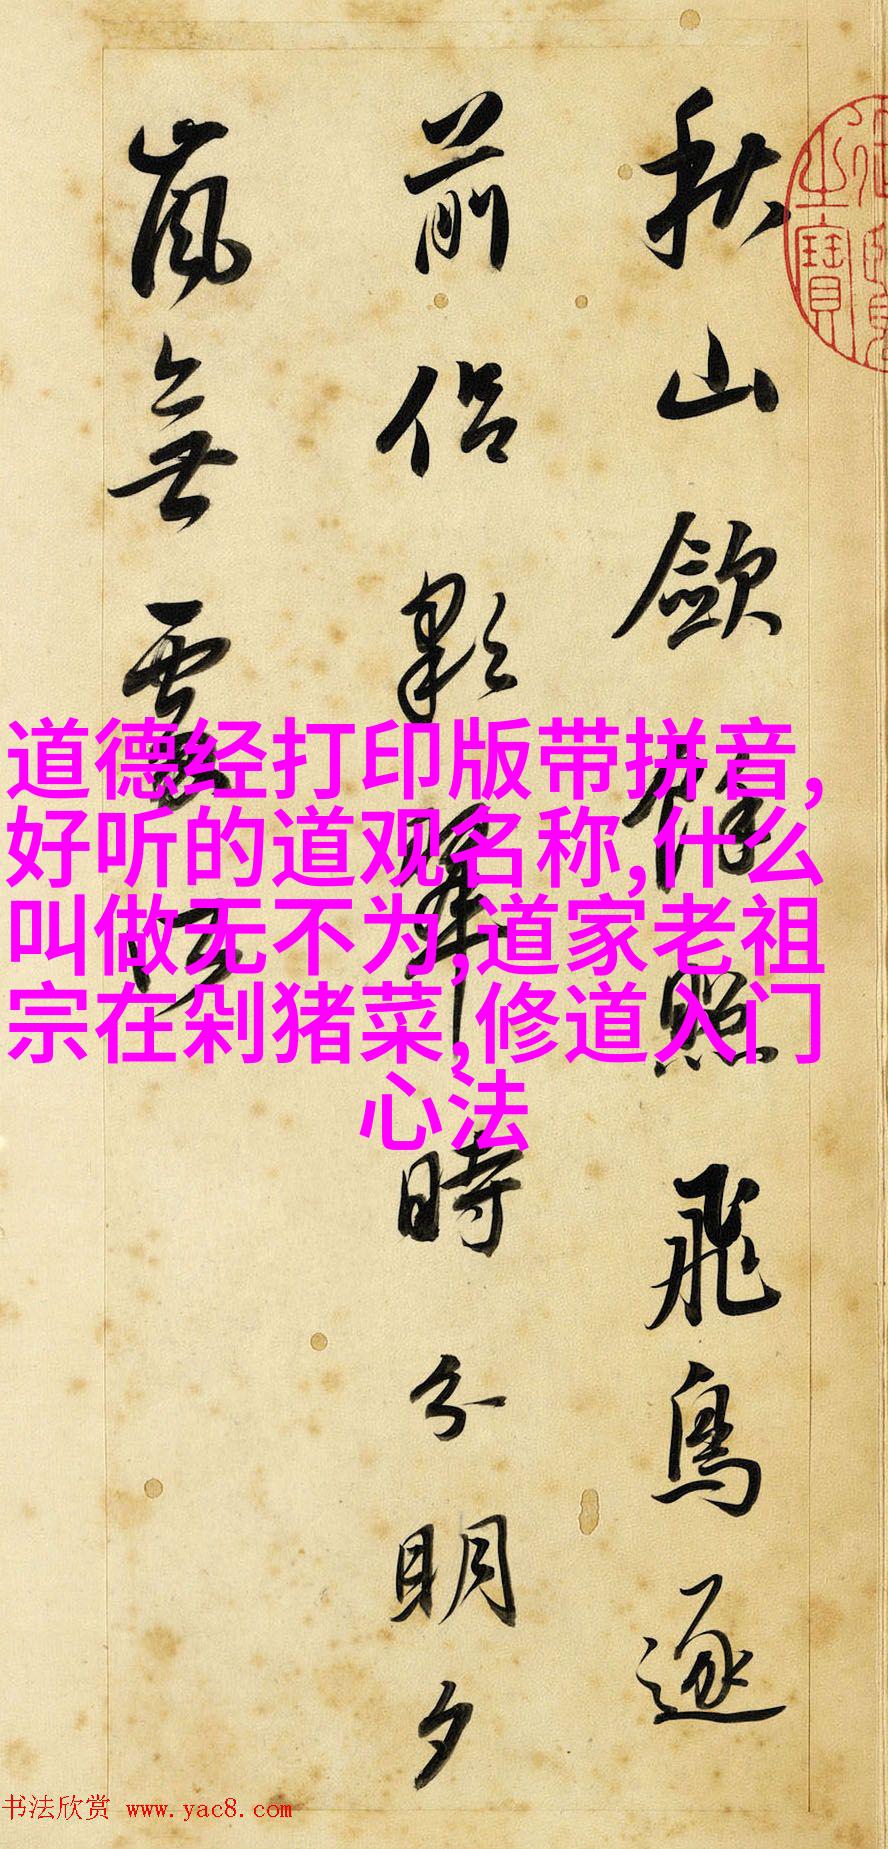 秋山歛餘照飛鳥逐
前侣彩翠時分明夕
嵐無處所
道德经打印版带拼音,
好听的道观名称,什么
叫做无不为,道家老祖
宗在剁猪菜,修道入门
心法
书法欣赏 www.yac8.com